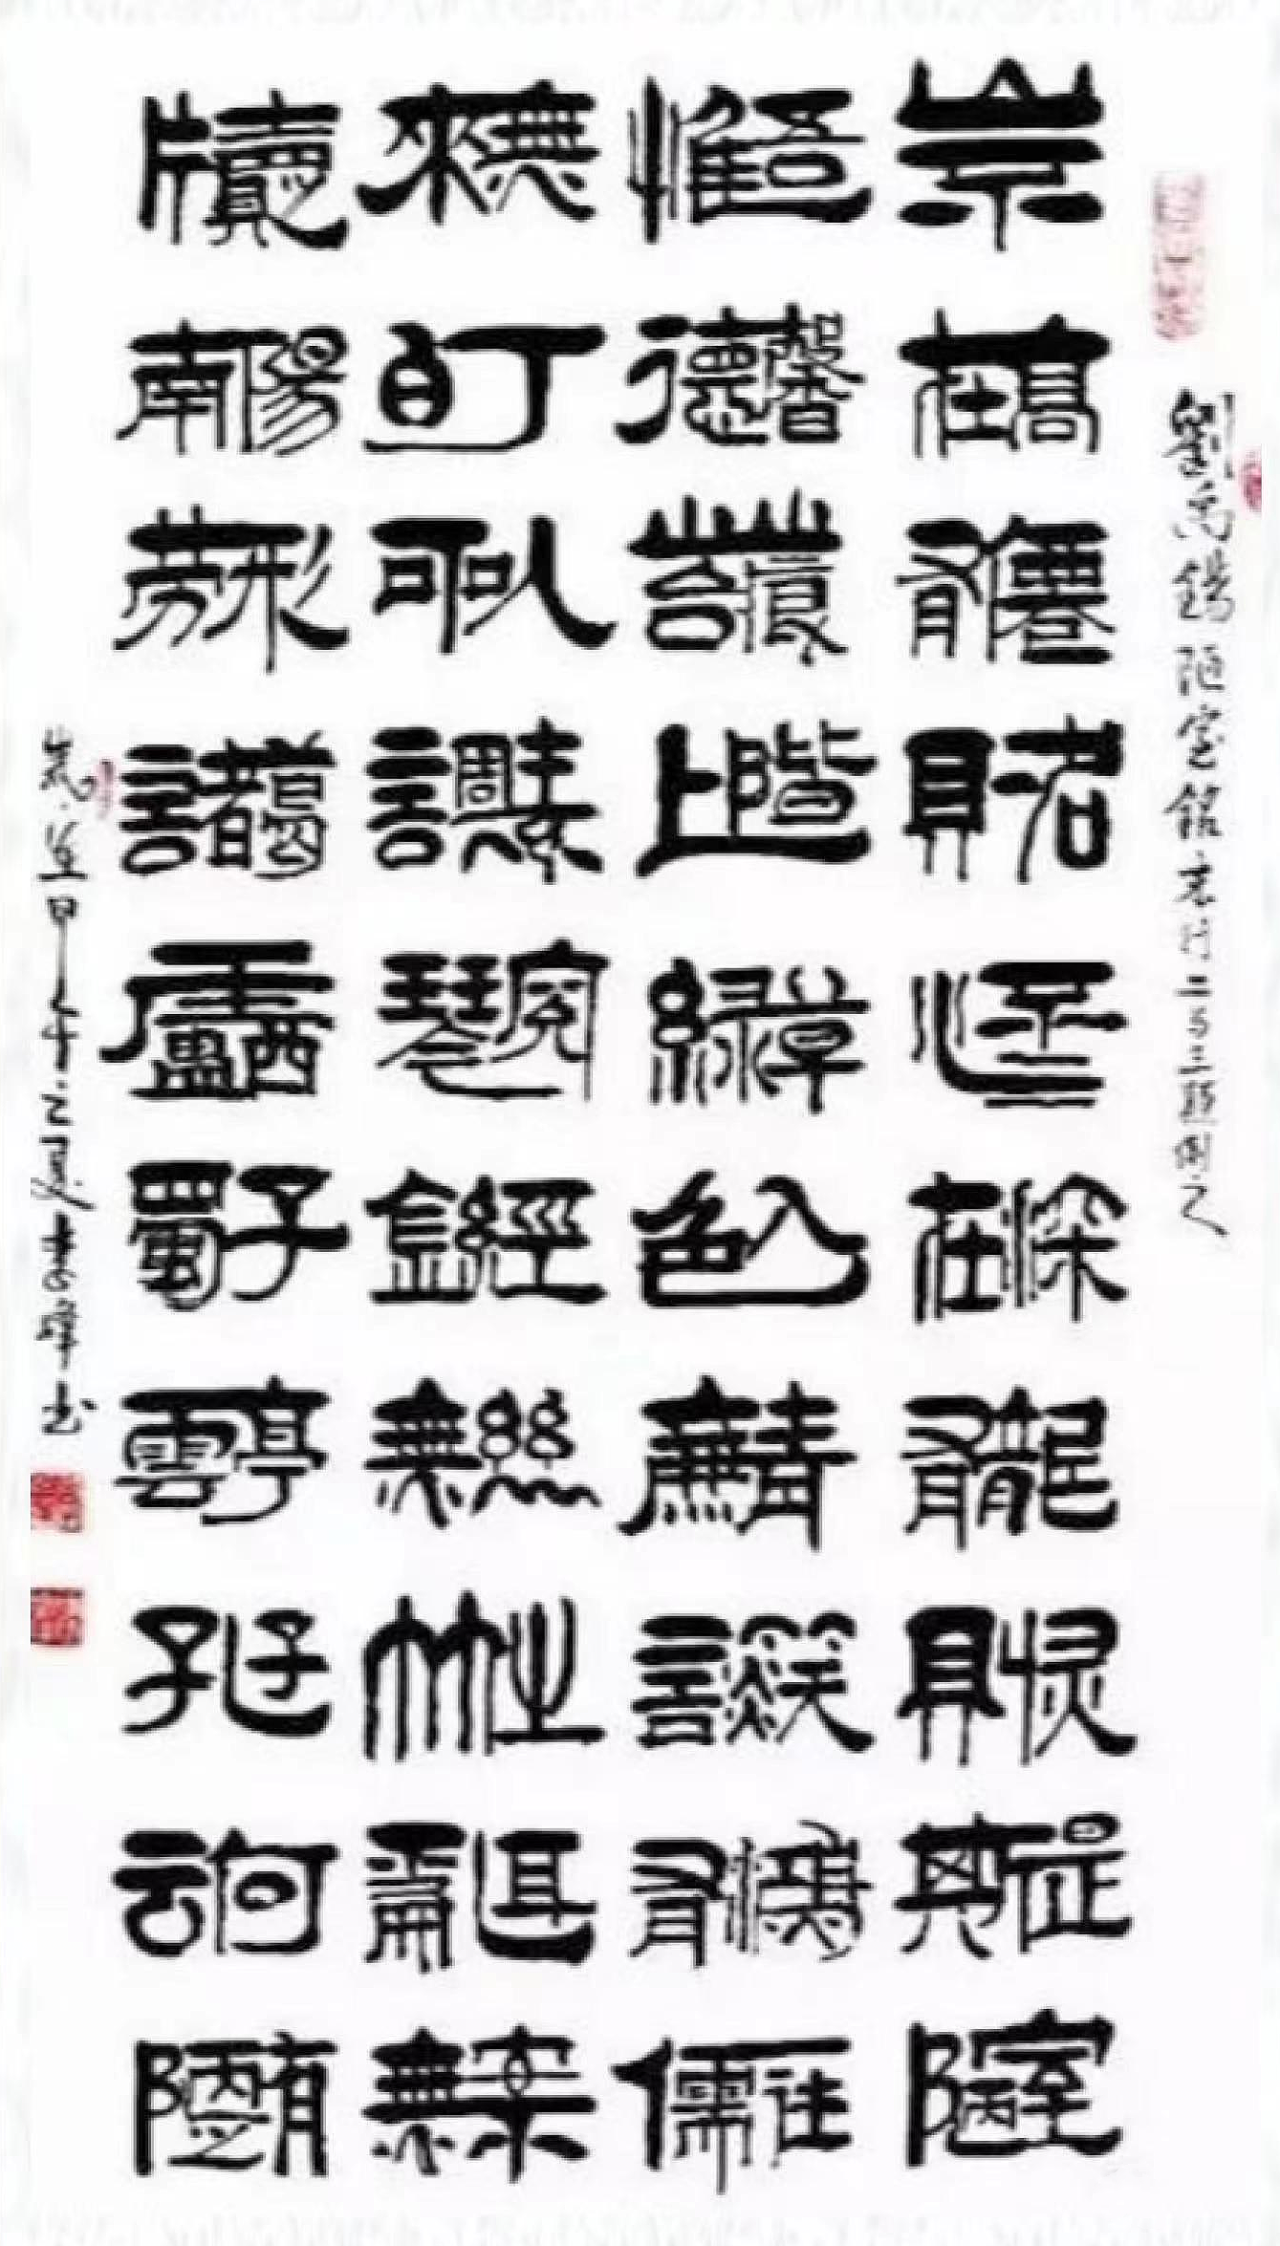 劉禹錫陋室銘
山不在高有僊則名水不在深有龍則灵斯是陋室
惟吾德馨苔痕上階綠草色入簾青談笑有鴻儒往
來無白丁可以調素琴閱金經無絲竹之亂耳無案
牘之南陽勞形諸葛廬西蜀子雲亭孔子云何陋之有
甲午之夏